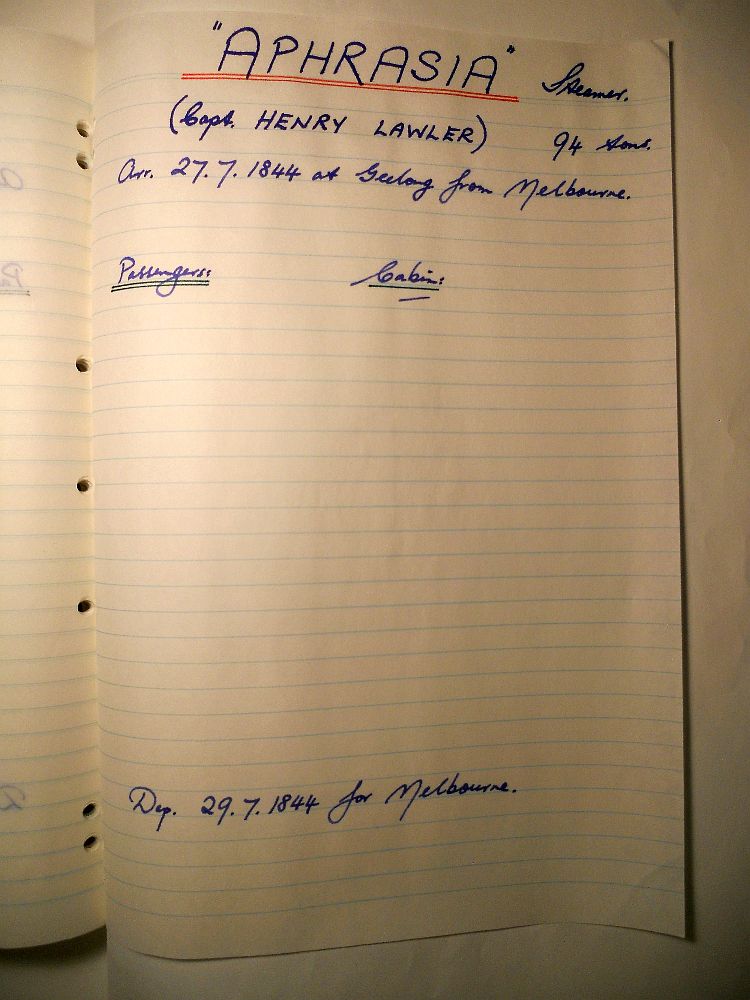 "APHRASIA" Steamer.
(Capt. HENRY LAWLER) 94 tons.
Arr. 27.7.1844 at Geelong from Melbourne.
Passengers: Cabin:
Dep. 29.7.1844 for Melbourne.